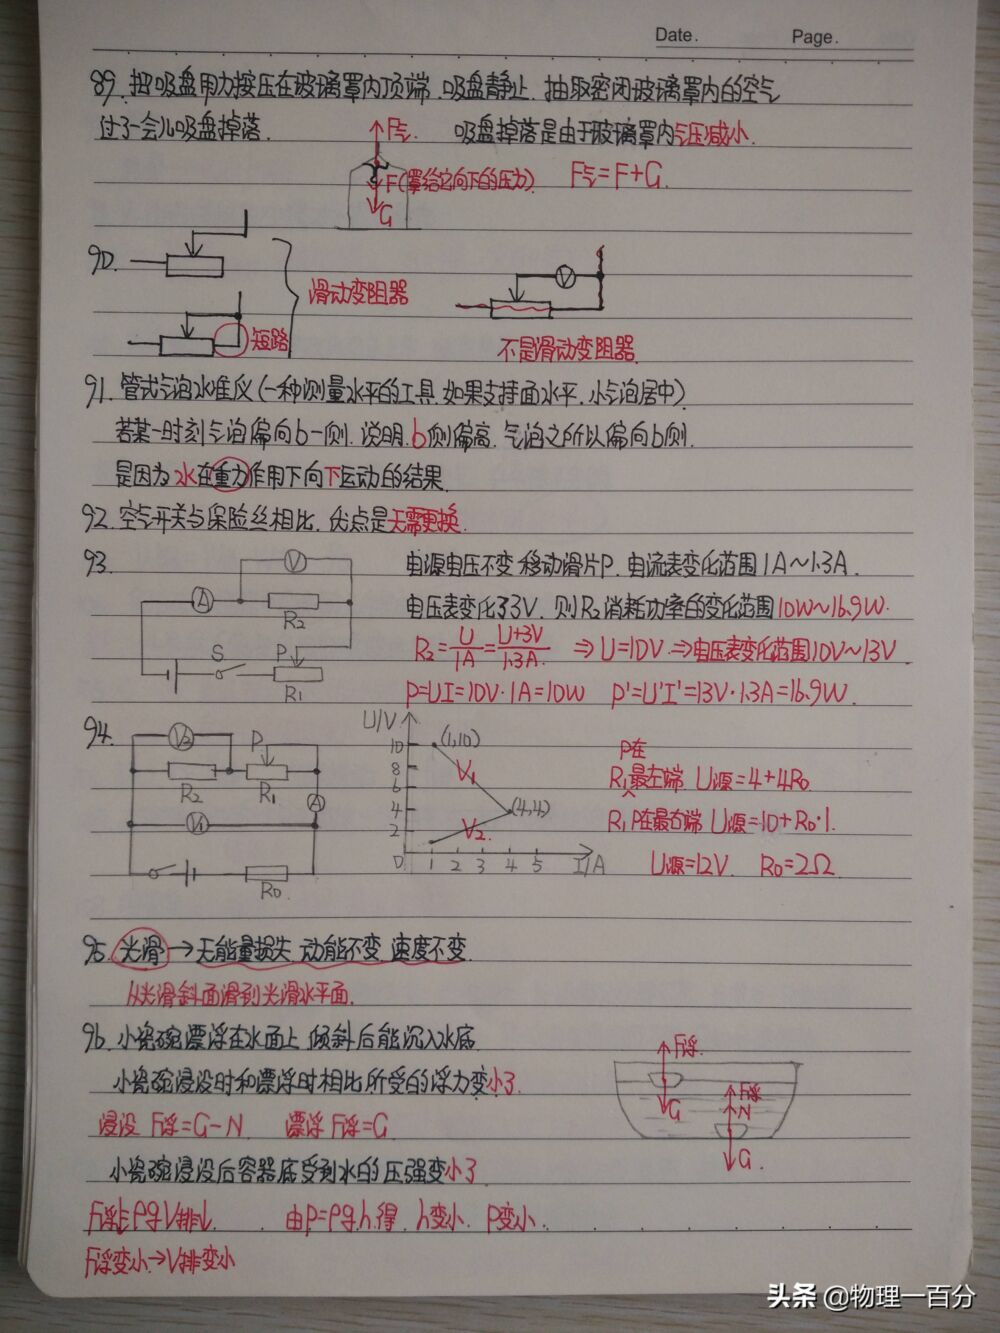 Date. Page.
89. 把吸盘用力按压在玻璃罩内顶端.吸盘静止.抽取密闭玻璃罩内的空气
过了一会儿吸盘掉落.
吸盘掉落是由于玻璃罩内气压减小.
F气
F(罩给它向下的压力)
F气=F+G
G
90.
滑动变阻器
V
短路
不是滑动变阻器.
91. 管式气泡水准仪(一种测量水平的工具.如果支持面水平.小气泡居中)
若某一时刻气泡偏向b一侧.说明.b侧偏高.气泡之所以偏向b侧.
是因为水在重力作用下向下运动的结果.
92. 空气开关与保险丝相比.优点是无需更换.
93
V
A
R2
S
P
R1
电源电压不变 移动滑片P.电流表变化范围1A~1.3A.
电压表变化了3V.则R2消耗功率的变化范围10W~16.9W.
R2=U/1A=U+3V/1.3A ⇒U=10V⇒电压表变化范围10V~13V.
P=UI=10V·1A=10W P'=U'I'=13V·1.3A=16.9W
94.
V2
P
R2
R1
A
V1
R0
U/V
10
8
6
4
2
0 1 2 3 4 5 I/A
(1,10)
V1
(4,4)
V2.
P在
R1最左端 U源=4+4R0
R1P在最右端 U源=10+R0·1.
U源=12V R0=2Ω
95. 光滑→无能量损失 动能不变 速度不变.
从光滑斜面滑到光滑水平面.
96. 小瓷碗漂浮在水面上 倾斜后能沉入水底.
小瓷碗浸没时和漂浮时相比所受的浮力变小了
浸没 F浮=G-N 漂浮F浮=G
小瓷碗浸没后容器底受到水的压强变小了
F浮
G
F浮
N
G.
由P=ρg.h.得.h变小.P变小.
F浮变小→V排变小
头条 @物理一百分